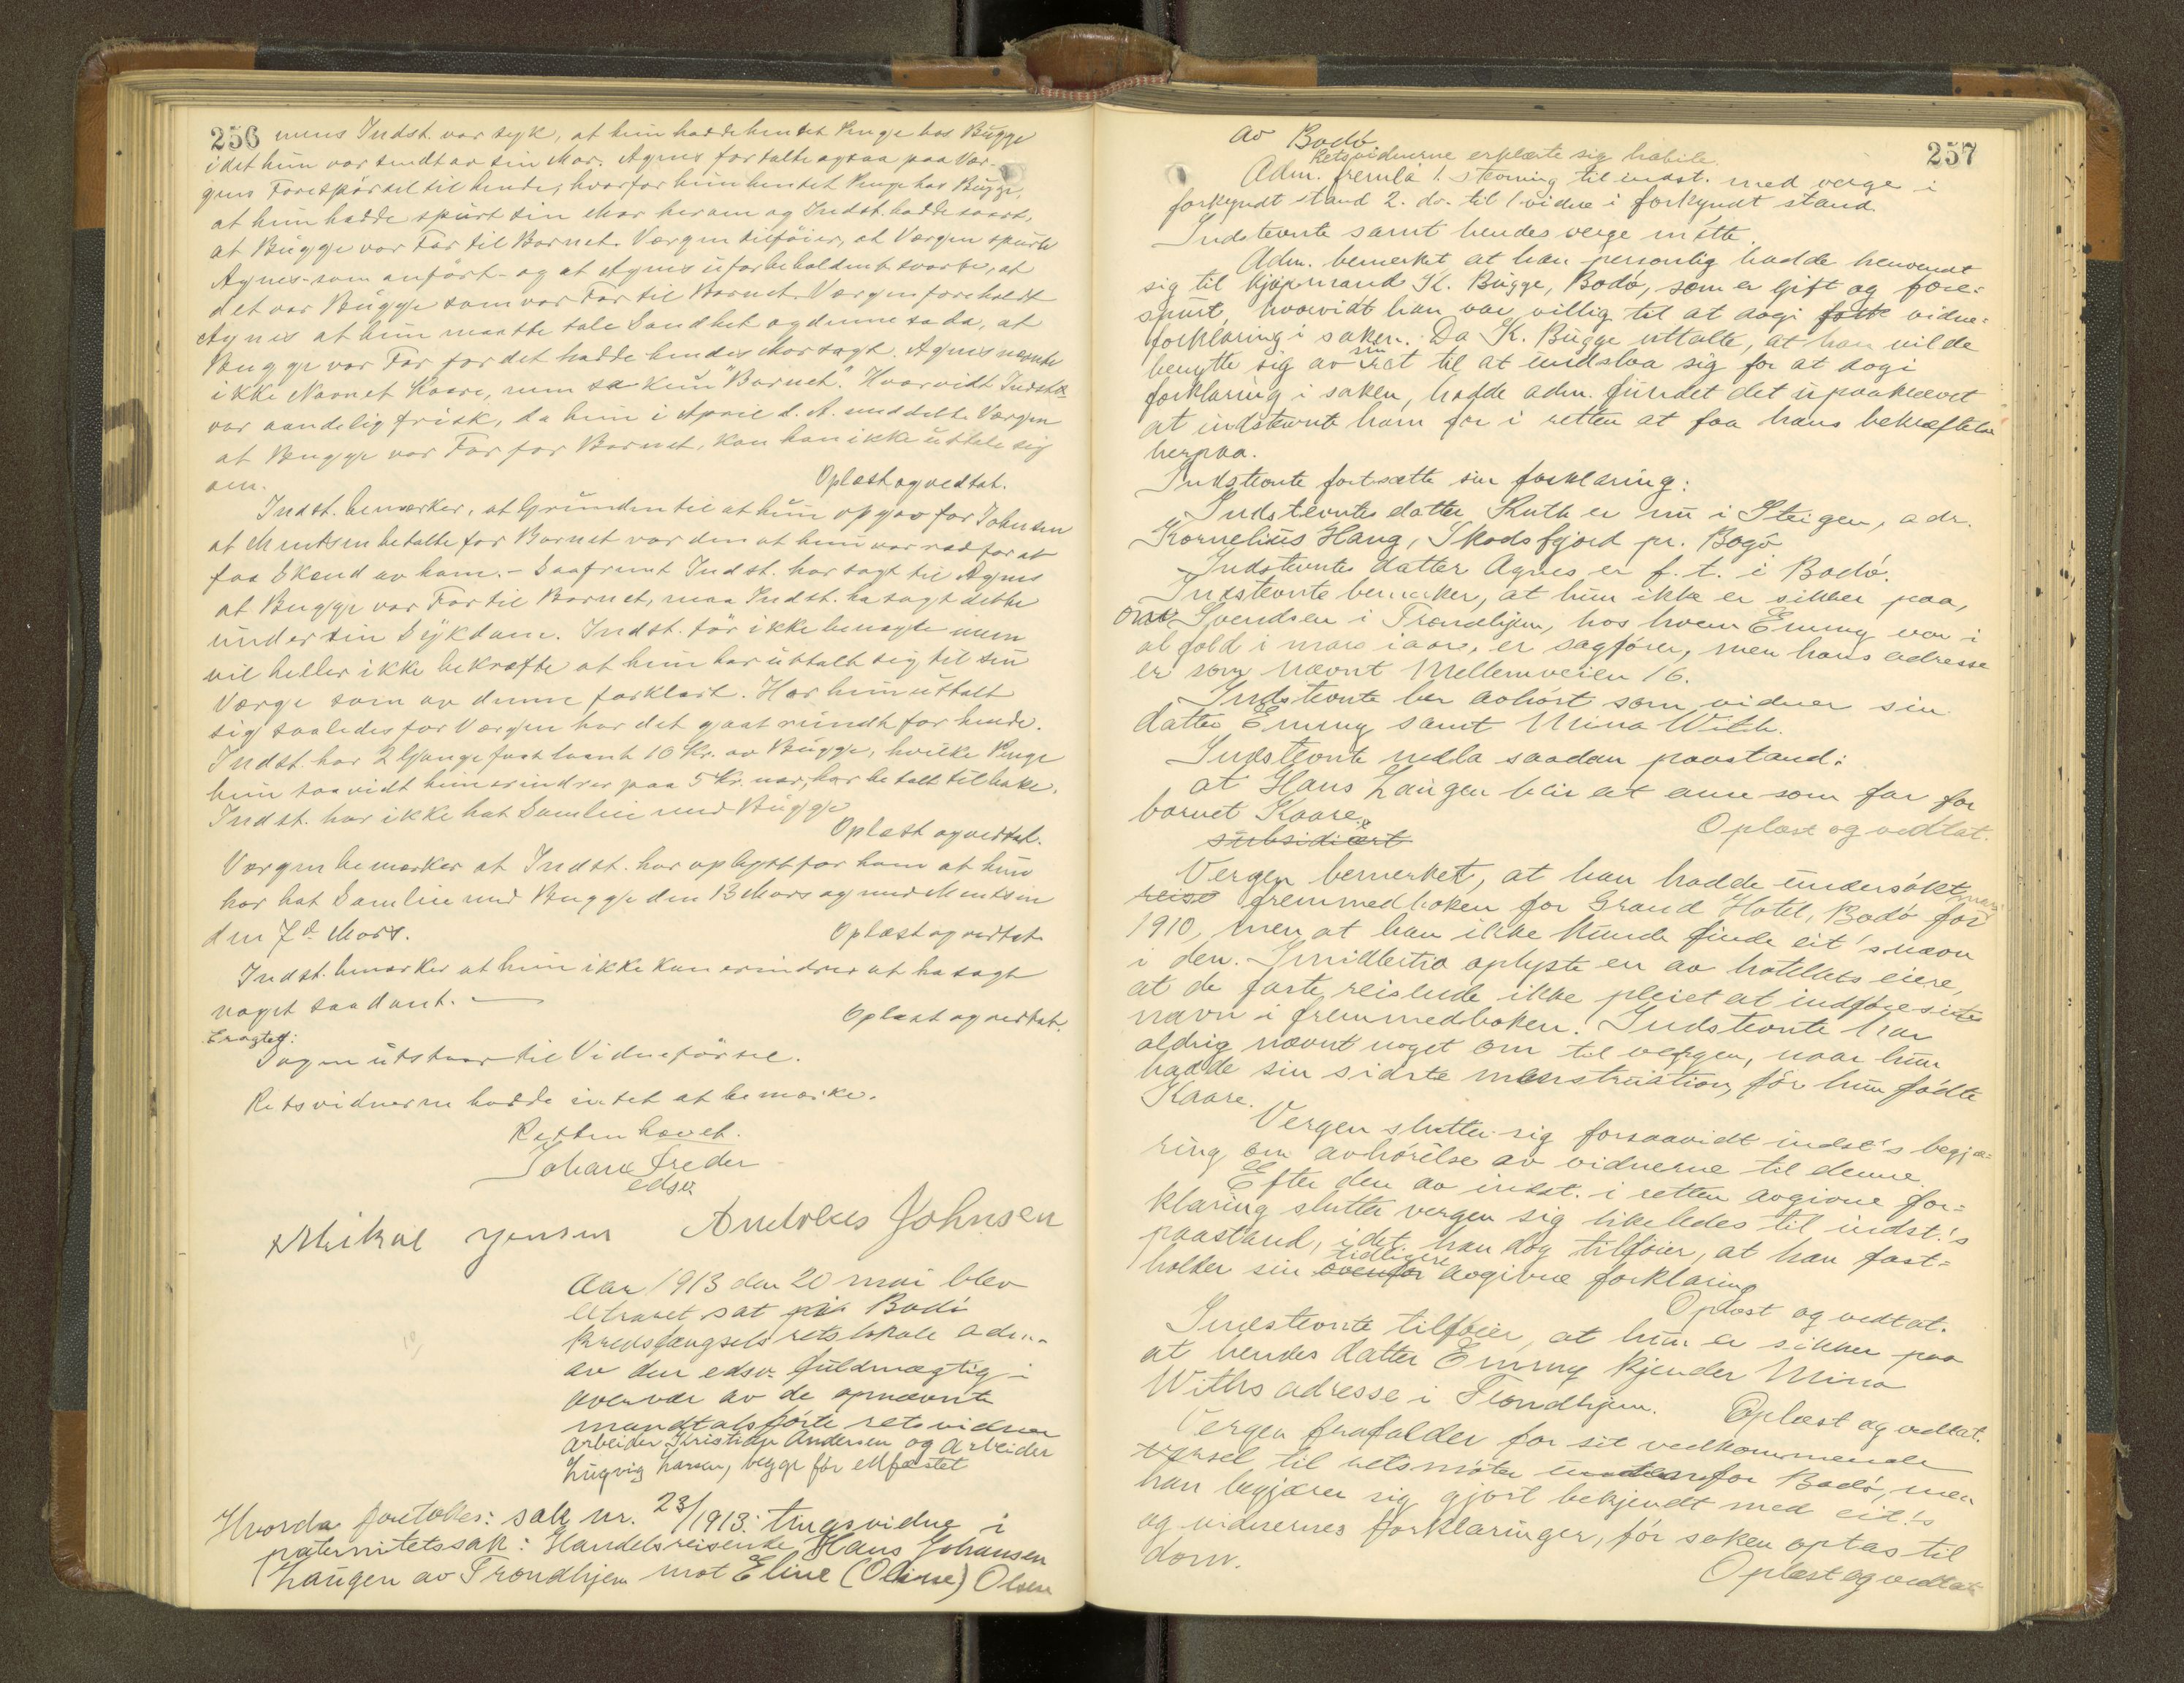 256 mens Indst. var syk, at hun hadde hentet Penge hos Bugge
idet hun var sendt av sin Mor. Agnes fortalte ogsaa paa Vær-
gens Forespørsel til hende, hvorfor hun hentet Penge hos Bugge,
at hun hadde spurt sin Mor herom og Indst. hadde svart,
at Bugge var Far til Barnet. Værgen tilføier, at Værgen spurte
Agnes som anført - og at Agnes uforbeholdent svarte, at
det var Bugge som var Far til Barnet. Værgen foreholdt
Agnes at hun maatte tale Sandhet og denne sa da, at
Bugge var Far for det hadde hendes Mor sagt. Agnes nævnte
ikke Navnet Kaare, men sa kun "Barnet". Hvorvidt Indst.
var aandelig frisk, da hun i April d. A. meddelte Værgen
at Bugge var Far for Barnet, kan han ikke uttale sig
om. Oplæst og vedtat.
Indst. bemærker, at Grunden til at hun opgav for Johnsen
at Mentsen betalte for Barnet var den at hun var ræd for at
faa Skænd av ham. - Saafremt Indst. har sagt til Agnes
at Bugge var Far til Barnet, maa Indst. ha sagt dette
under sin Sykdom. Indst. tør ikke benegte men
vil heller ikke bekræfte at hun har uttalt sig til sin
Værge som av denne forklart. Har hun uttalt
sig saaledes for Værgen har det gaat rundt for hende.
Indst. har 2 Gange faat laant 10 Kr. av Bugge, hvilke Penge
hun saavidt hun erindrer paa 5 Kr. nær, har betalt tilbake.
Indst. har ikke hat Samleie med Bugge
Oplæst og vedtat.
Værgen bemærker at Indst. har oplyst for ham at hun
har hat Samleie med Bugge den 13 Mars og med Mentsen
den 7de Mars. Oplæst og vedtat
Indst. bemærker at hun ikke kan erindrer at ha sagt
noget saadant. Oplæst og vedtat.
Eragtet:
Sagen utstaar til Vidneførsel.
Retsvidnerne hadde intet at bemærke.
Retten hævet.
Johan Treder
edsv.
Mikal Jensen Andreas Johnsen
Aar 1913 den 20 mai blev
etraret sat paa Bodø
kredsfængsels retslokale adm.
av den edsv. fuldmægtig i
overvær av de opnævnte
mandtalsførte retsvidner
arbeider Kristian Andersen og arbeider
Lugvig Larsen, begge før edfæstet
Hvorda foretokes: sak nr. 23/1913: tingsvidne i
paternitetssak: Handelsreisende Hans Johansen
Laugen av Trondhjem mot Eline (Oline) Olsen
257
av Bodø
Retsvidnerne erklærte sig habile.
Adm. fremla 1. stevning til indst. med verge i
forkyndt stand 2. do. til 1 vidne i forkyndt stand.
Indstevnte samt hendes verge møtte.
Adm. bemerket at han personlig hadde henvendt
sig til kjøpmand K. Bugge, Bodø, som er gift og fore-
spurt, hvorvidt han var villig til at avgi vidne-
forklaring i saken. Da K. Bugge uttalte, at han vilde
benytte sig av sin ret til at undslaa sig for at avgi
forklaring i saken, hadde adm. fundet det upaakrævet
at indstevnte ham for i retten at faa hans bekræftelse
herpaa.
Indstevnte fortsætte sin forklaring:
Indstevntes datter Ruth er nu i Steigen, adr.
Kornelius Haug, Skodsfjord pr. Bogø
Indstevntes datter Agnes er f. t. i Bodø.
Indstevnte bemerker, at hun ikke er sikker paa,
om Svendsen i Trondhjem, hos hvem Emmy var i
al fald i mars iaar, er sagfører, men hans adresse
er som nævnt Mellemveien 16.
Indstevnte ber avhørt som vidner sin
datter Emmy samt Mina With.
Indstevnte nedla saadan paastand:
at Hans Laugen blir at anse som far for
barnet Kaare. Oplæst og vedtat.
subsidiært
Vergen bemerket, at han hadde undersøkt
reise fremmedboken for Grand Hotel, Bodø for mars
1910, men at han ikke kunde finde cit's navn
i den. Imidlertid oplyste en av hotellets eiere,
at de faste reisende ikke pleiet at indføre sit
navn i fremmedboken. Indstevnte har
aldrig nævnt noget om til vergen, naar hun
hadde sin sidste menstruation, før hun fødte
Kaare.
Vergen slutter sig forsaavidt indst's begjæ-
ring om avhørelse av vidnerne til denne.
Efter den av indst. i retten avgivne for-
klaring slutter vergen sig likeledes til indst.'s
paastand, idet han dog tilføier, at han fast-
holder sin ovenfor tidligere avgivne forklaring
Oplæst og vedtat.
Indstevnte tilføier, at hun er sikker paa
at hendes datter Emmy kjender Mina
Withs adresse i Trondhjem. Oplæst og vedtat.
Vergen frafalder for sit vedkommende
varsel til retsmøter utenfor Bodø, men
han begjærer sig gjort bekjendt med cit.'s
og vidnernes forklaringer, før saken optas til
dom.
Oplæst og vedtat